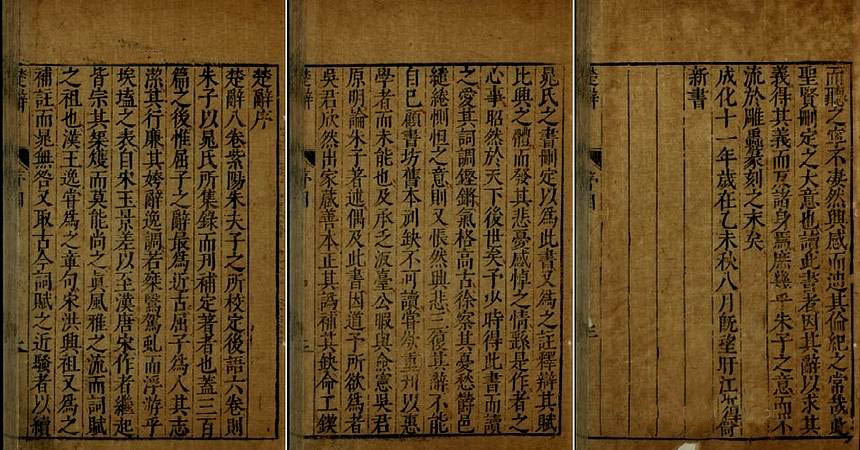 楚辭序
楚辭八卷紫陽朱夫子之所校定後語六卷則
朱子以晁氏所集錄而刋補定著者也蓋三百
篇之後惟屈子之辭最爲近古屈子爲人其志
潔其行廉其姱辭逸調若椉鷖駕虬而浮游乎
埃壒之表自宋玉景差以至漢唐宋作者繼起
皆宗其榘矱而莫能尚之眞風雅之流而詞賦
之祖也漢王逸嘗爲之章句宋洪興祖又爲之
補註而晁無咎又取古今詞賦之近騷者以續
晁氏之書刪定以爲此書又爲之註釋辯其賦
比興之體而發其悲憂感悼之情繇是作者之
心事昭然於天下後世矣予少時得此書而讀
之愛其詞調鏗鏘氣格高古徐察其憂愁鬱邑
繾綣惻怛之意則又悵然興悲三復其辭不能
自已顧書坊舊本刓缺不可讀嘗欲重刋以惠
學者而未能也及承乏汳臺公暇與僉憲吳君
原明論朱子著述偶及此書因道予所欲爲者
吳君欣然出家藏善本正其譌補其缺命工鋟
而聽之寧不凄然興感而迪其倫紀之常哉此
聖賢刪定之大意也讀此書者因其辭以求其
義得其義而反諸身焉庶幾乎朱子之意而不
流於雕蟲篆刻之末矣
成化十一年歲在乙未秋八月旣望盱江
新書